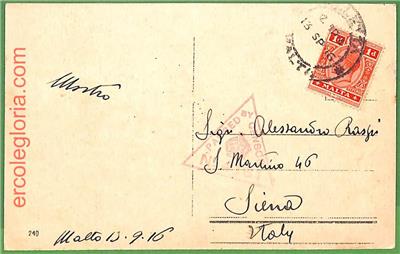 ercolegloria.com
VALLETTA
13 SP 16
MALTA
1d 1d
MALTA
PASSED BY
Sigr. Alessandro
S. Martino 46
Siena
Italy
Malta 13.9.16
240